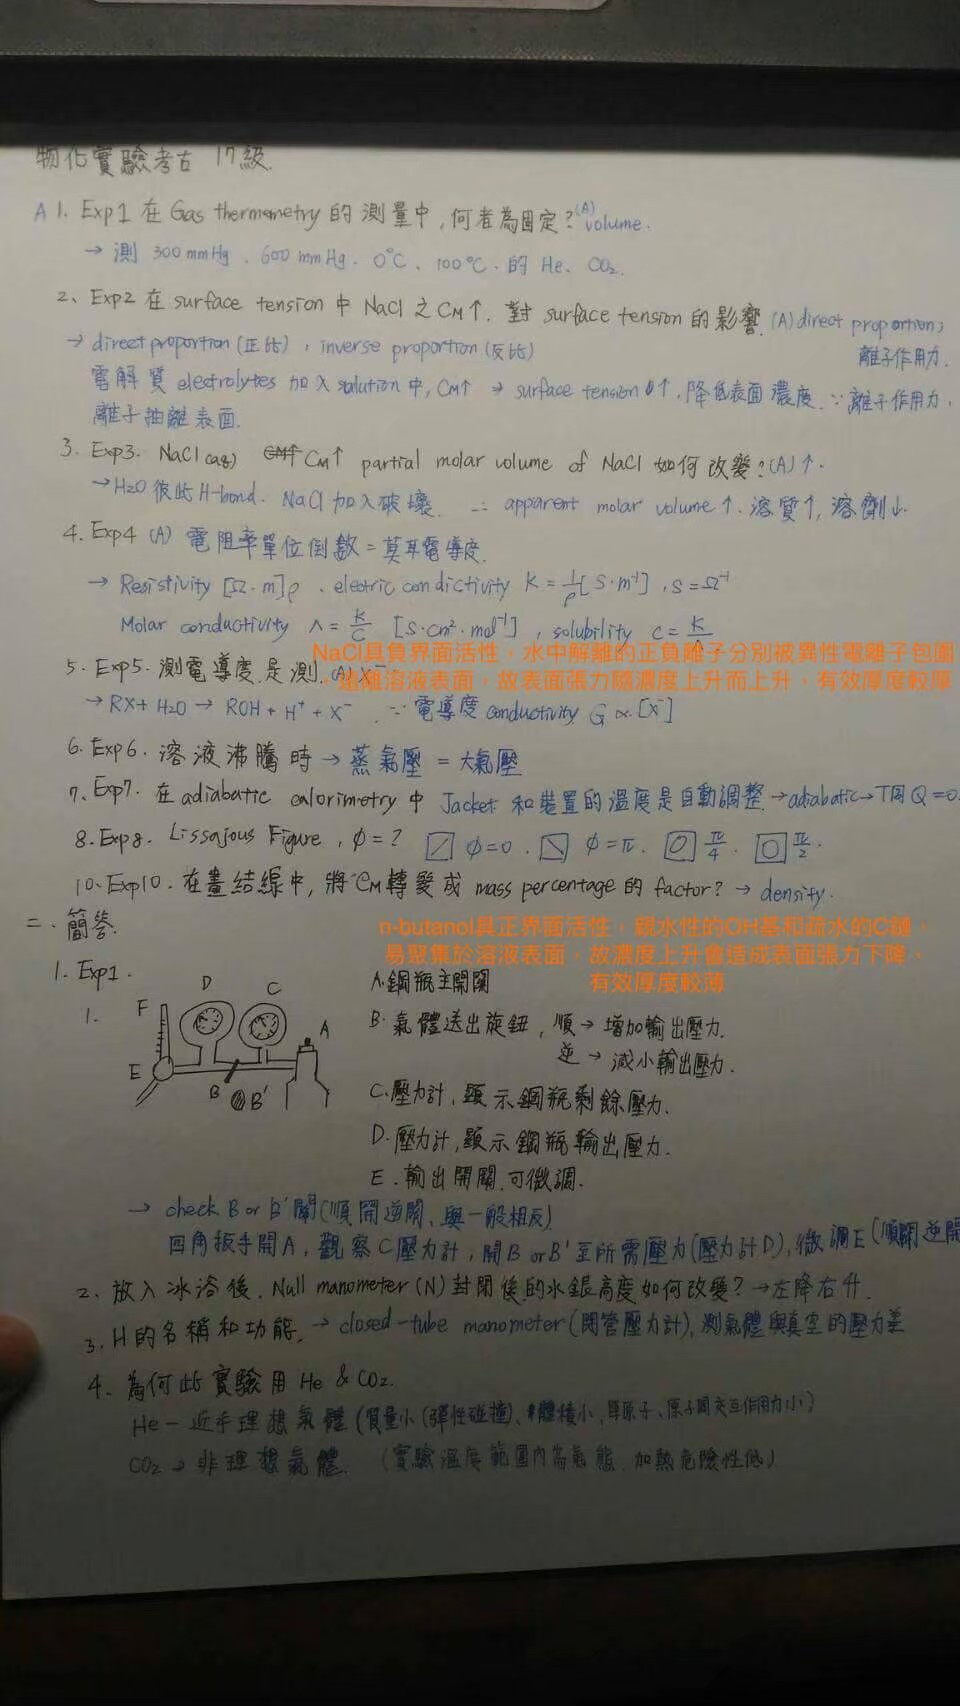 物化實驗考古 17級.
A 1. Exp1 在 Gas thermometry 的測量中,何者為固定? (A) volume.
→ 測 300 mmHg、600 mmHg、0°C、100°C、的 He、CO₂.
2、Exp2 在 surface tension 中 NaCl 之 CM↑. 對 surface tension 的影響. (A) direct proportion;
離子作用力.
→ direct proportion (正比) , inverse proportion (反比)
電解質 electrolytes 加入 solution 中, CM↑ → surface tension ↑, 降低表面濃度. ∵離子作用力,
離子抽離表面.
3. Exp3. NaCl (aq) CM↑ partial molar volume of NaCl 如何改變? (A) ↑.
→ H₂O 彼此 H-bond. NaCl 加入破壞. ∴ apparent molar volume ↑. 溶質↑, 溶劑↓.
4. Exp4 (A) 電阻率單位倒數 = 莫耳電導度.
→ Resistivity [Ω·m] ρ . electric condictivity K = 1/ρ [S·m⁻¹] , S = Ω⁻¹
Molar conductivity Λ = K/C [S·cm²·mol⁻¹] , solubility C = K/Λ
NaCl具負界面活性，水中解離的正負離子分別被異性電離子包圍
，遠離溶液表面，故表面張力隨濃度上升而上升，有效厚度較厚
5. Exp5. 測電導度是測. (A) X⁻
→ RX + H₂O → ROH + H⁺ + X⁻ ∵ 電導度 conductivity G ∝ [X⁻]
6. Exp6. 溶液沸騰時 → 蒸氣壓 = 大氣壓
7、Exp7. 在 adiabatic calorimetry 中 Jacket 和裝置的溫度是自動調整. → adiabatic → T同 Q = 0.
8. Exp8. Lissajous Figure , φ = ? φ = 0 . φ = π . π/4 . π/2 .
10、Exp10. 在畫結線中, 將 CM 轉變成 mass percentage 的 factor? → density.
二、簡答.
n-butanol具正界面活性，親水性的OH基和疏水的C鏈，
易聚集於溶液表面，故濃度上升會造成表面張力下降，
有效厚度較薄
1. Exp1.
1.
F D C A E B B'
A. 鋼瓶主開關
B. 氣體送出旋鈕, 順 → 增加輸出壓力.
逆 → 減小輸出壓力.
C. 壓力計, 顯示鋼瓶剩餘壓力.
D. 壓力計, 顯示鋼瓶輸出壓力.
E. 輸出開關, 可微調.
→ check B or B' 關 (順開逆關, 與一般相反)
四角扳手開A, 觀察C壓力計, 開B or B' 至所需壓力 (壓力計D), 微調E (順關逆開
2. 放入冰浴後, Null manometer (N) 封閉後的水銀高度如何改變? → 左降右升.
3. H的名稱和功能. → closed-tube manometer (閉管壓力計), 測氣體與真空的壓力差
4. 為何此實驗用 He & CO₂.
He — 近乎理想氣體 (質量小 (彈性碰撞)、體積小、單原子、原子間交互作用力小)
CO₂ → 非理想氣體. (實驗溫度範圍內為氣態, 加熱危險性低)